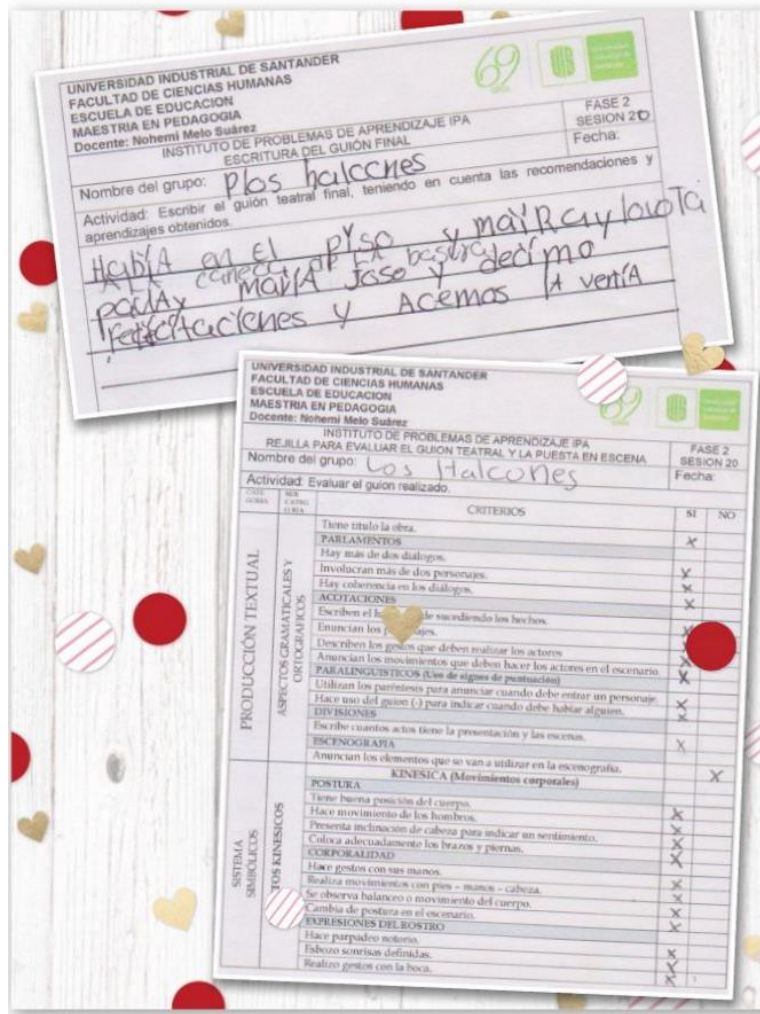 UNIVERSIDAD INDUSTRIAL DE SANTANDER
FACULTAD DE CIENCIAS HUMANAS
ESCUELA DE EDUCACION
MAESTRIA EN PEDAGOGIA
Docente: Nohemi Melo Suárez
69
INSTITUTO DE PROBLEMAS DE APRENDIZAJE IPA
ESCRITURA DEL GUIÓN FINAL
FASE 2
SESION 20
Nombre del grupo: Plos halcones
Fecha:
Actividad: Escribir el guión teatral final, teniendo en cuenta las recomendaciones y
aprendizajes obtenidos.
HabíA en El piso y
basura
MaríA Joso y decimo
y Acemos lA
UNIVERSIDAD INDUSTRIAL DE SANTANDER
FACULTAD DE CIENCIAS HUMANAS
ESCUELA DE EDUCACION
MAESTRIA EN PEDAGOGIA
Docente: Nohemi Melo Suárez
69
INSTITUTO DE PROBLEMAS DE APRENDIZAJE IPA
REJILLA PARA EVALUAR EL GUION TEATRAL Y LA PUESTA EN ESCENA
FASE 2
SESION 20
Nombre del grupo: Los Halcones
Fecha:
Actividad: Evaluar el guion realizado.
CRITERIOS SI NO
PRODUCCIÓN TEXTUAL
ASPECTOS GRAMATICALES Y
ORTOGRAFICOS
Tiene titulo la obra. X
PARLAMENTOS
Hay más de dos diálogos. X
Involucran más de dos personajes. X
Hay coherencia en los diálogos. X
ACOTACIONES
Escriben el de sucediendo los hechos. X
Enuncian los
Describen los gestos que deben realizar los actores
Anuncian los movimientos que deben hacer los actores en el escenario. X
PARALINGUISTICOS (Uso de signos de puntuación)
Utilizan los paréntesis para anunciar cuando debe entrar un personaje. X
Hace uso del guion (-) para indicar cuando debe hablar alguien. X
DIVISIONES
Escribe cuantos actos tiene la presentación y las escenas. X
ESCENOGRAFIA
Anuncian los elementos que se van a utilizar en la escenografia. X
SISTEMA
SIMBÓLICOS
KINESICOS
KINESICA (Movimientos corporales)
POSTURA
Tiene buena posición del cuerpo. X
Hace movimiento de los hombros. X
Presenta inclinación de cabeza para indicar un sentimiento. X
Coloca adecuadamente los brazos y piernas. X
CORPORALIDAD
Hace gestos con sus manos. X
Realiza movimientos con pies – manos – cabeza. X
Se observa balanceo o movimiento del cuerpo. X
Cambia de postura en el escenario. X
EXPRESIONES DEL ROSTRO
Hace parpadeo notorio. X
Esbozo sonrisas definidas. X
Realizo gestos con la boca. X